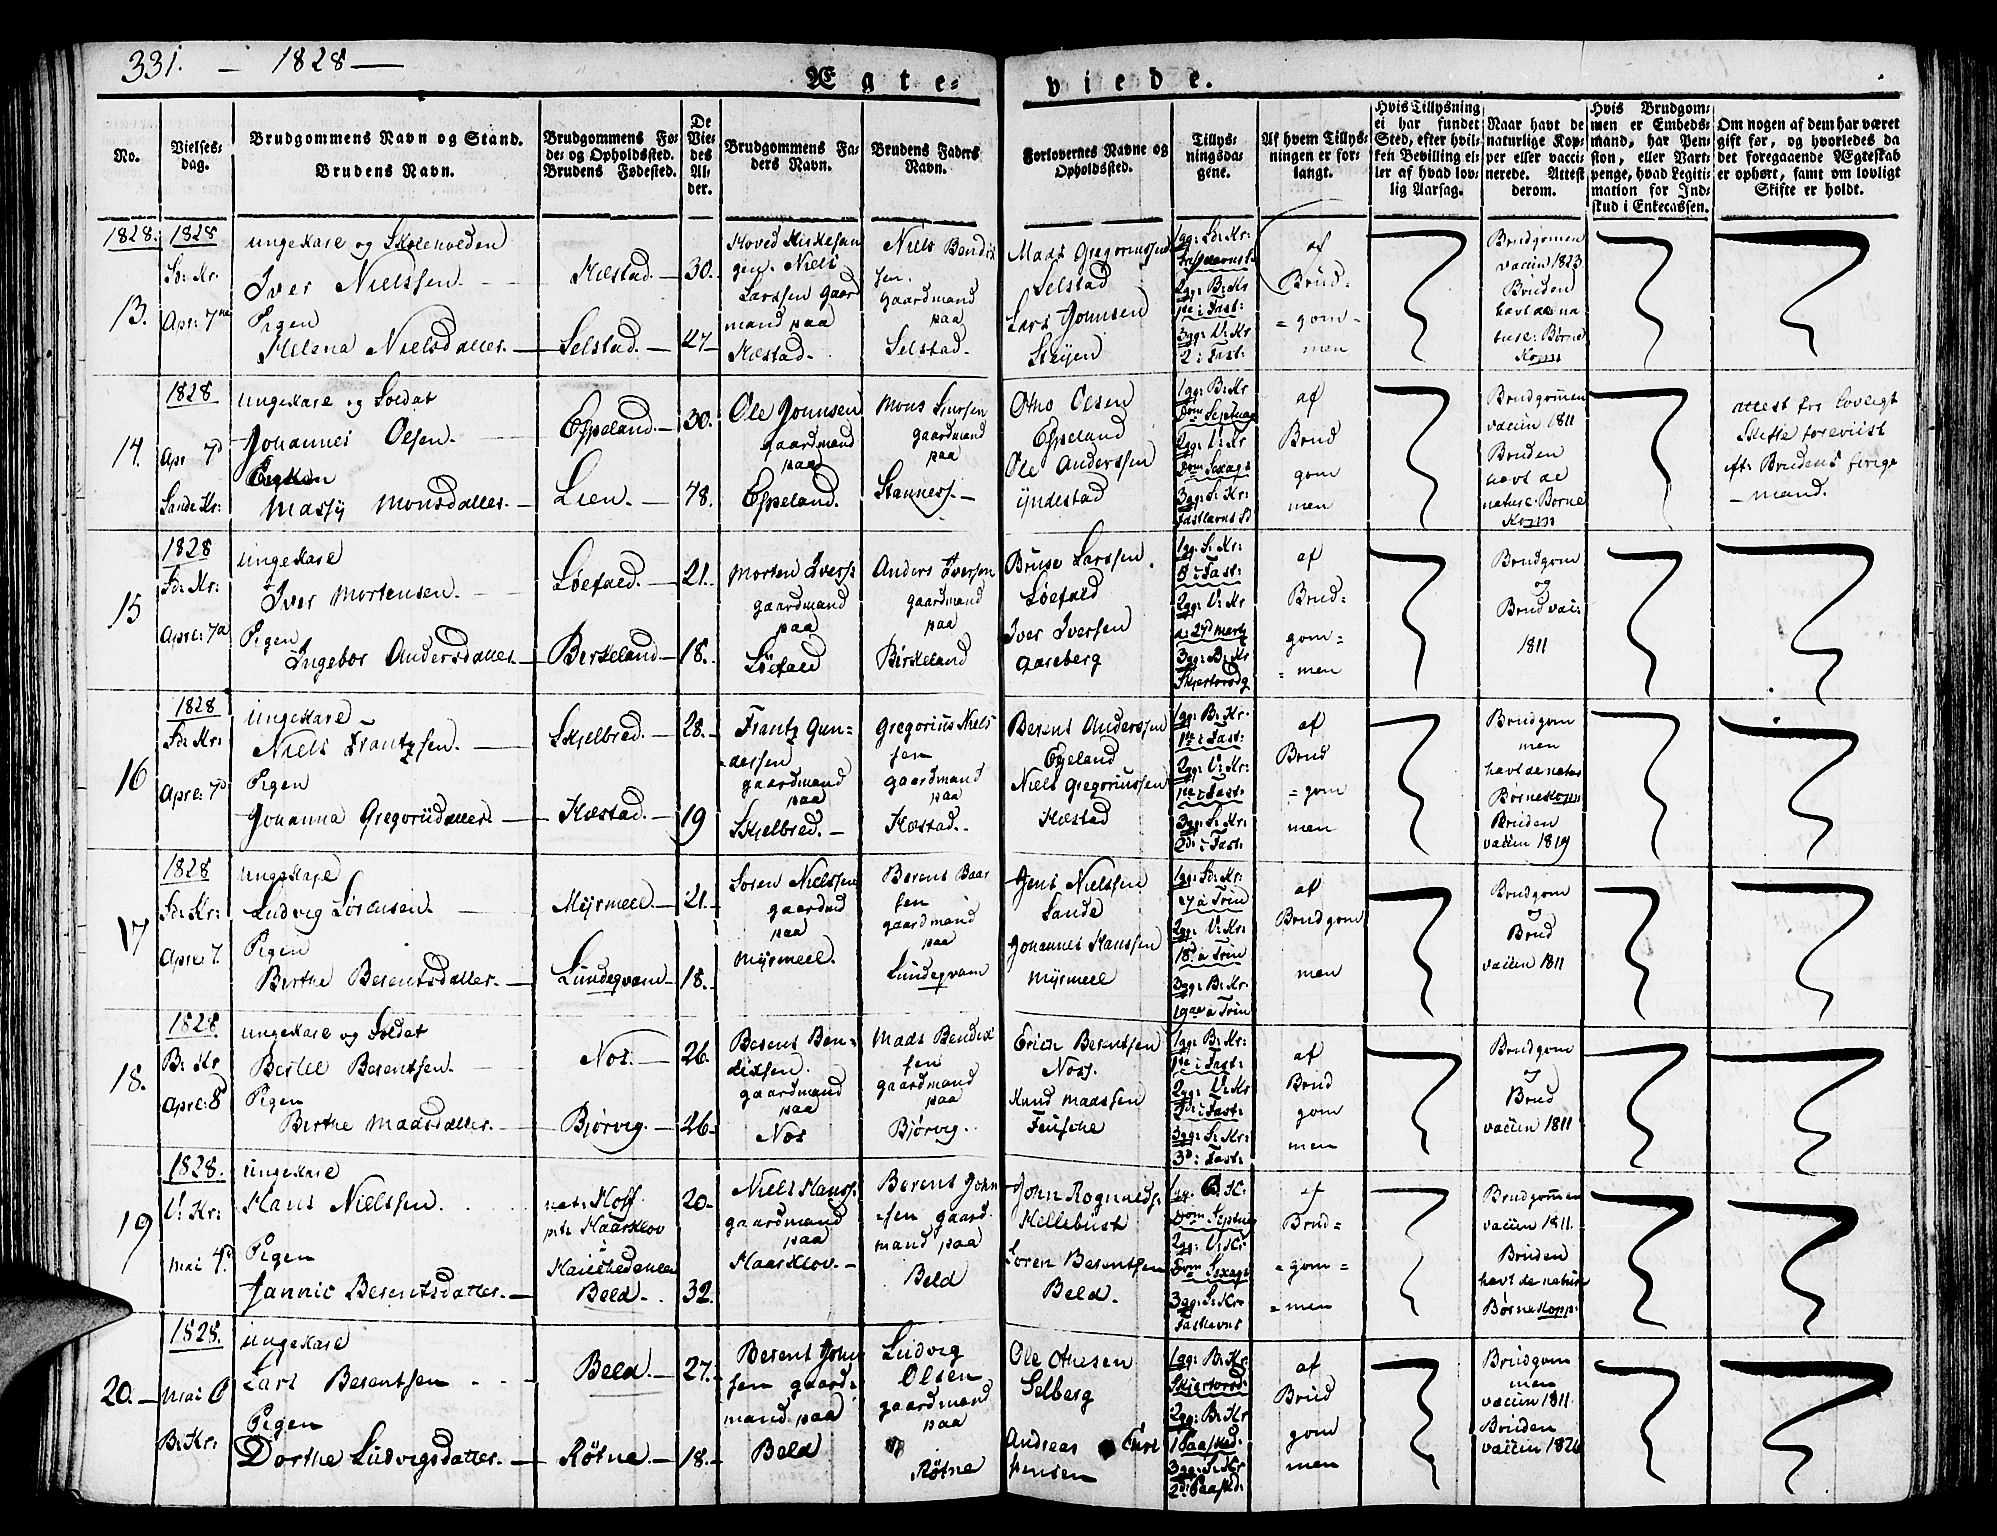 331. - 1828 -
Ægte- viede.
No.
Vielses-
dag.
Brudgommens Navn og Stand.
Brudens Navn.
Brudgommens Fø-
de- og Opholdssted.
Brudens Fødested.
De
Vie-
des
Al-
der.
Brudgommens Fa-
ders Navn.
Brudens Faders
Navn.
Forlovernes Navne og
Opholdssted.
Tillys-
ningsda-
gene.
Af hvem Tillys-
ningen er for-
langt.
Hvis Tillysning
ei har fundet
Sted, efter hvil-
ken Bevilling el-
ler af hvad lov-
lig Aarsag.
Naar havt de
naturlige Kop-
per eller vacci-
nerede. Attest
derom.
Hvis Brudgom-
men er Embeds-
mand, har Pen-
sion, eller Vart-
penge, hvad Legiti-
mation for Ind-
skud i Enkecassen.
Om nogen af dem har været
gift før, og hvorledes da
det foregaaende Ægteskab
er ophørt, samt om lovligt
Skifte er holdt.
1828.
13.
1828
Sd: Kr:
Apr: 7
ungekarl og
Iver Nielssen.
Pigen
Helena Nielsdatter
Kæstad.
Selstad.
30.
27
Niels
Larssen Gaard
mand paa
Kæstad.
Niels Bendix
sen.
gaardmand
paa
Selstad.
Mads Gregoriussen
Selstad
Lars Johnsen
1gg: Sd: Kr:
2gg: B: Kr
1ste i Fast:
3gg: V: Kr
2 i Fast:
af
Brud-
=gom=
men
Brudgomen
vaccin 1823
Bruden
havt de na
turl: Børne
Kopper
14.
1828
Apr 7d
Sande Kr:
ungekarl og Soldat
Johannes Olsen.
Enken
Massy Monsdatter.
Espeland.
Lien.
30.
48.
Ole Johnsen
gaardmand
paa
Espeland.
Mons
gaardmand
paa
Otho Olsen
Espeland
Ole Anderssen
Yndestad
1gg: B: Kr
Dom Septuag
2gg: V: Kr
Dom Sexag:
3gg: S: Kr:
Fastlavns Sd
af
Brud
gom
men
Brudgomen
vaccin 1811
Bruden
havt de
naturl: Børne
Kopper
attest for lovligt
Skifte foreviist
eft: Brudens forige
- mand.
15
1828
Sd: Kr:
Apr: 7d
ungekarl
Iver Mortensen.
Pigen
Ingebor Andersdatter
Løefald.
Birkeland
21.
18.
Morten Ivers
gaardmand
paa
Løefald
Anders Iversen
gaardmand
paa
Birkeland
Larssen.
Løefald
Iver Iversen
Aareberg
1gg: S: Kr:
3 i Fast:
2gg: V: Kr
d: 27d Marty
3gg: B: Kr
Skjertorsdg
af
Brud=
gom=
=men
Brudgom
og
Brud vac:
1811
16
1828
Sd: Kr:
Apr: 7d
ungekarl
Niels Frantzsen.
Pigen
Johanna Gregoriidatter.
Skjelbred.
Kæstad.
28.
19
Frantz Gun=
dersen
gaardmand
paa
Skjelbred.
Gregorius Niels
sen
gaardmand
paa
Kæstad.
Berent Anderssen
Egeland
Niels Gregoriussen
Kæstad
1gg: B: Kr.
1ste i Fast:
2gg: V: Kr:
1ste i Fast:
3gg: S: Kr:
2d: i Fast:
af
Brud
=gom
men
Brudgom
men
havt de natur
Børnekopper
Bruden
vaccin 1819
17
1828
Sd: Kr:
Apr: 7.
ungekarl
Ludvig Sørensen.
Pigen
Birthe Berentsdatter.
Myrmeel.
Lundeqvam
21.
18.
Soren Nielssen
gaardmd
paa
Myrmeel.
Berent Baar
sen
gaardmand
paa
Lundeqvam
Jens Nielssen
Sande
Johannes Hanssen
Myrmeel
1gg: Sd: Kr:
17 a Trin
2gg: V: Kr:
18d a Trin
3gg: B: Kr.
19de a Trin
af
Brudgom
men
Brudgom
og
Brud
vaccin 1811
18.
1828.
B: Kr
Apr: 8d
ungekarl og Soldat
Bertel Berentsen.
Pigen
Birthe Madsdatter.
Nos.
Bjørvig.
26
26.
Berent Ben=
dixsen.
gaardmand
paa
Nos
Mads Bendix
sen
gaardmand
paa
Bjørvig.
Erich Berentsen
Nos.
Knud Madssen
1gg: B: Kr:
1ste i Fast:
2gg: V: Kr
2d: i Fast:
3gg: S: Kr:
3d: i Fast:
af
Brud
gom
men
Brudgom
og
Brud
vaccin 1811
19
1828.
V: Kr:
Mai 4d
ungekarl
Hans Nielssen.
Pigen
Jannic Berentsdatter.
Haarklov
Beld.
20.
32.
Niels Hanss.
gaardmand
paa
Haarklov.
Berent John
=sen gaard
mand paa
Beld
John
Hellebust
Soren Berentsen
Beld.
1gg. B: K:
Dom Septuag
2gg: V: Kr
Dom Sexag:
3gg: S: Kr.
Fastlavns
af
Brud=
=gom=
=men
Brudgommen
vaccin 1811.
Bruden
havt de naturl
Børnekopp:
20.
1828.
Mai
B: Kr:
ungekarl
Lars Berentsen
Pigen
Dorthe Ludvigsdatter.
Beld.
Røtne.
27.
18.
Berent John
sen gaard=
mand paa
Beld
Ludvig
Olsen
gaardmand
paa
Røtne
Ole
Selberg
Andreas
1gg: B: Kr.
Skjertorsd:
2gg: B: Kr
1 Paaskd:
3gg: S: Kr
2d: Paaskd:
af
Brud
gom
men
Brudgom
men
vaccin 1811
Bruden
vaccin 1820